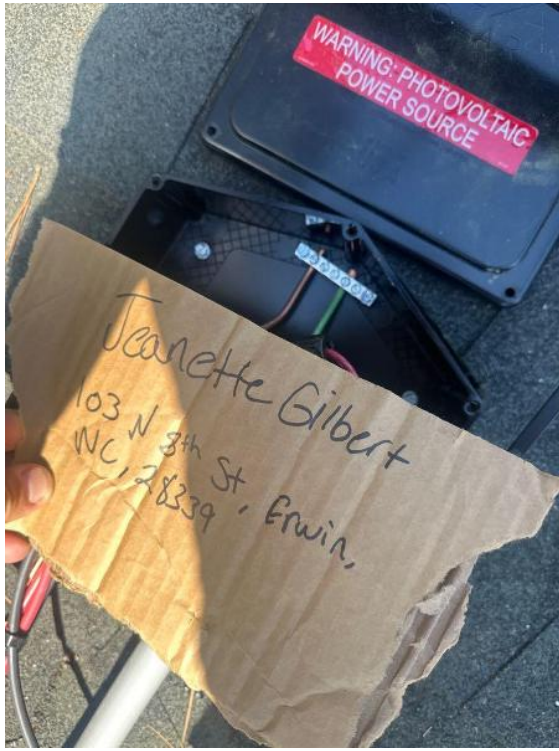 WARNING: PHOTOVOLTAIC
POWER SOURCE
Jeanette Gilbert
103 N 8th St, Erwin,
NC, 28339